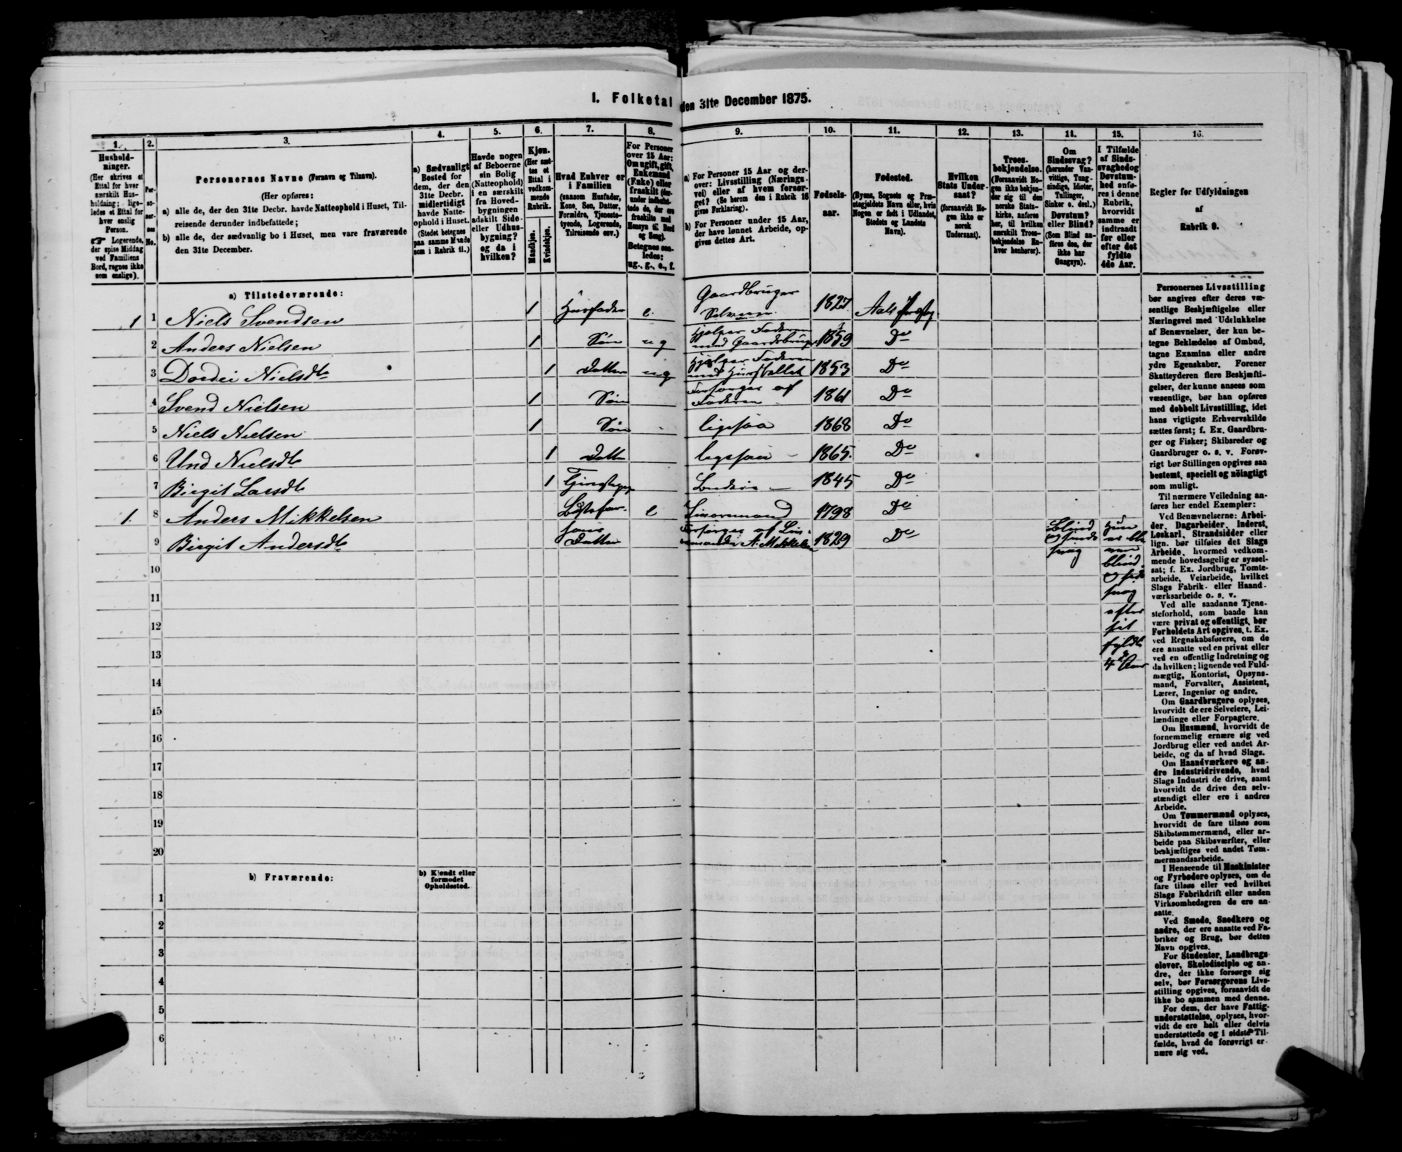 I. Folketal den 31te December 1875.
1. 2. 3. 4. 5. 6. 7. 8. 9. 10. 11. 12. 13. 14. 15. 16.
Hushold-
ninger.
(Her skrives et
Ettal for hver
særskilt Hus-
holdning; lige-
ledes et Ettal for
hver enslig
Person.
☞ Logerende,
der spise Middag
ved Familiens
Bord, regnes ikke
som enslige).
Per-
so-
ner-
nes
No.
Personernes Navne (Fornavn og Tilnavn).
(Her opføres:
a) alle de, der den 31te Decbr. havde Natteophold i Huset, Til-
reisende derunder indbefattede;
b) alle de, der sædvanlig bo i Huset, men vare fraværende
den 31te December.
a) Sædvanligt
Bosted for
dem, der den
31te Decbr.
midlertidigt
havde Natte-
ophold i Huset.
(Stedet betegnes
paa samme Maade
som i Rubrik 11.)
Havde nogen
af Beboerne
sin Bolig
(Natteophold)
i en særskilt
fra Hoved-
bygningen
adskilt Side-
eller Udhus-
bygning?
og da i
hvilken?
Kjøn.
(Her sæt-
tes et
Ettal i
vedkom-
mende
Rubrik.
Mandkjøn.
Kvindekjøn.
Hvad Enhver er
i Familien
(saasom Husfader,
Kone, Søn, Datter,
Forældre, Tjeneste-
tyende, Logerende,
Tilreisende osv.)
For Personer
over 15 Aar:
Om ugift, gift,
Enkemand
(Enke) eller
fraskilt
Betegnes saa-
ledes:
ug., g., e., f.
a) For Personer 15 Aar og der-
over: Livsstilling (Nærings-
vei) eller af hvem forsør-
get? (Se herom den i Rubrik 16
givne Forklaring).
b) For Personer under 15 Aar,
der have lønnet Arbeide, op-
gives dettes Art.
Fødsels-
aar.
Fødested.
(Byens, Sognets og Præ-
stegjeldets Navn eller, hvis
Nogen er født i Udlandet,
Stedets og Landets
Navn).
Hvilken
Stats Under-
saat?
(forsaavidt No-
gen ikke er
norsk
Undersaat).
Troes-
bekjendelse.
(Forsaavidt No-
gen ikke bekjen-
der sig til den
norske Stats-
kirke, anføres
her, til hvilken
særskilt Troes-
bekjendelse Ved-
kommende hører).
Om
Sindssvag?
(herunder Van-
vittige, Tung-
sindige, Idioter,
Tullinger,
Sinker o. desl.)
Døvstum?
eller Blind?
(Som Blind an-
føres den, der
ikke har
Gangsyn).
I Tilfælde
af Sinds-
svaghed og
Døvstum-
hed anfø-
res i denne
Rubrik,
hvorvidt
samme er
indtraadt
før eller
efter det
fyldte
4de Aar.
Regler for Udfyldningen
af
Rubrik 9.
a) Tilstedeværende:
1 1 Niels Svendsen 1 Husfader e. Gaardbruger Selveier 1827 Aals Præstg
2 Anders Nielsen 1 Søn ug Hjelper Faderen med Gaardsbrug 1859 Do
3 Dordei Nielsdt 1 Datter ug Hjelper Faderen med Husstellet 1853 Do
4 Svend Nielsen 1 Søn Forsørges af Faderen 1861 Do
5 Niels Nielsen 1 Søn - ligesaa 1868 Do
6 Und Nielsdt 1 Datter ligesaa - 1865. Do
7 Birgit Larsdt 1 - 1845 Do
1. 8 Anders Mikkelsen e 1798 Do
9 Birgit Andersdt hans Datter Forsørges af A. Mikkelsen 1829 Do Blind
hun
blev
blind
efter
sit
fyldte
4de Aar
10
11
12
13
14
15
16
17
18
19
20
b) Fraværende:
b) Kjendt eller
formodet
Opholdssted.
1
2
3
4
5
6
Personernes Livsstilling
bør angives efter deres væ-
sentlige Beskjæftigelse eller
Næringsvei med Udelukkelse
af Benævnelser, der kun be-
tegne Beklædelse af Ombud,
tagne Examina eller andre
ydre Egenskaber. Forener
Skatteyderen flere Beskjæfti-
gelser, der kunne ansees som
væsentlige, bør han opføres
med dobbelt Livsstilling, idet
hans vigtigste Erhvervskilde
sættes først; f. Ex. Gaardbru-
ger og Fisker; Skibsreder og
Gaardbruger o. s. v. Forøv-
rigt bør Stillingen opgives saa
bestemt, specielt og nøiagtigt
som muligt.
Til nærmere Veiledning an-
føres her endel Exempler:
Ved Benævnelserne: Arbei-
der, Dagarbeider, Inderst,
Løskarl, Strandsidder eller
lign. bør tilføies det Slags
Arbeide, hvormed vedkom-
mende hovedsagelig er syssel-
sat; f. Ex. Jordbrug, Tomte-
arbeide, Veiarbeide, hvilket
Slags Fabrik- eller Haand-
værksarbeide o. s. v.
Ved alle saadanne Tjene-
steforhold, som baade kan
være privat og offentligt, bør
Forholdets Art opgives, t. Ex.
ved Regnskabsførere, om de
ere ansatte ved en privat eller
ved en offentlig Indretning og
da hvilken; lignende ved Fuld-
mægtig, Kontorist, Opsyns-
mand, Forvalter, Assistent,
Lærer, Ingeniør og andre.
Om Gaardbrugere oplyses,
hvorvidt de ere Selveiere, Lei-
lændinge eller Forpagtere.
Om Husmænd, hvorvidt de
fornemmelig ernære sig ved
Jordbrug eller ved andet Ar-
beide, og da af hvad Slags.
Om Haandværkere og an-
dre Industridrivende, hvad
Slags Industri de drive, samt
hvorvidt de drive den selv-
stændigt eller ere i andres
Arbeide.
Om Tømmermænd oplyses,
hvorvidt de fare tilsøs som
Skibstømmermænd, eller ar-
beide paa Skibsværfter, eller
beskjæftiges ved andet Tøm-
mermandsarbeide.
I Henseende til Maskinister
og Fyrbødere oplyses, om de
fare tilsøs eller ved hvilket
Slags Fabrikdrift eller anden
Virksomhedsgren de ere an-
satte.
Ved Smede, Snedkere og
andre, der ere ansatte ved Fa-
briker og Brug, bør dettes
Navn opgives.
For Studenter, Landbrugs-
elever, Skoledisciple og an-
dre, der ikke forsørge sig
selv, bør Forsørgerens Livs-
stilling opgives, forsaavidt de
ikke bo sammen med denne.
For dem, der have Fattig-
understøttelse, oplyses, hvor-
vidt de ere helt eller delvis
understøttede og i sidste Til-
fælde, hvad de forøvrigt er-
nære sig ved.